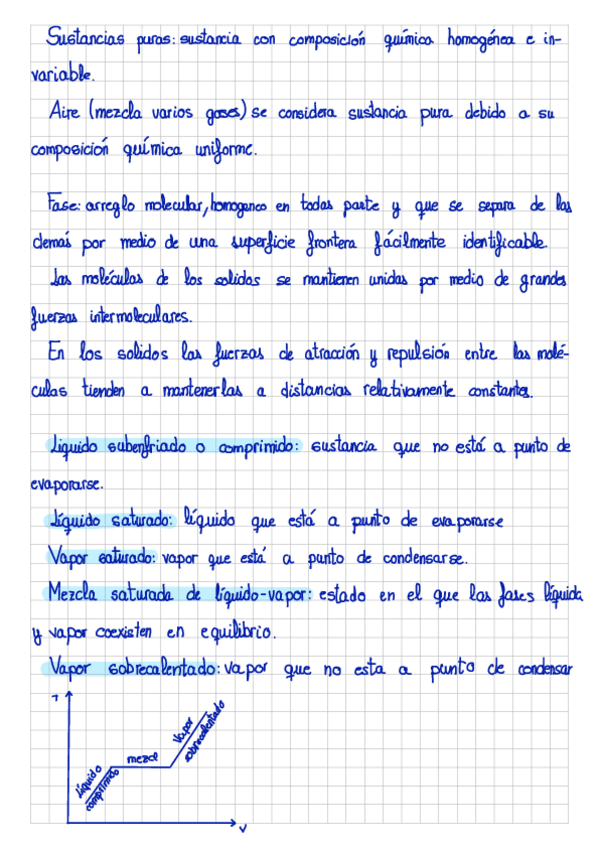 Sustancias puras: sustancia con composición química homogénea e in-
variable.
Aire (mezcla varios gases) se considera sustancia pura debido a su
composición química uniforme.
Fase: arreglo molecular, homogeneo en todas parte y que se separa de las
demás por medio de una superficie frontera fácilmente identificable
Las moléculas de los solidos se mantienen unidas por medio de grandes
fuerzas intermoleculares.
En los solidos las fuerzas de atracción y repulsión entre las molé-
culas tienden a mantenerlas a distancias relativamente constantes.
Liquido subenfriado o comprimido: sustancia que no está a punto de
evaporarse.
Líquido saturado: líquido que está a punto de evaporarse
Vapor saturado: vapor que está a punto de condensarse.
Mezcla saturada de líquido-vapor: estado en el que las fases líquida
y vapor coexisten en equilibrio.
Vapor sobrecalentado: vapor que no esta a punto de condensar
T
Vapor
sobrecalentado
mezcl
Líquido
comprimido
V